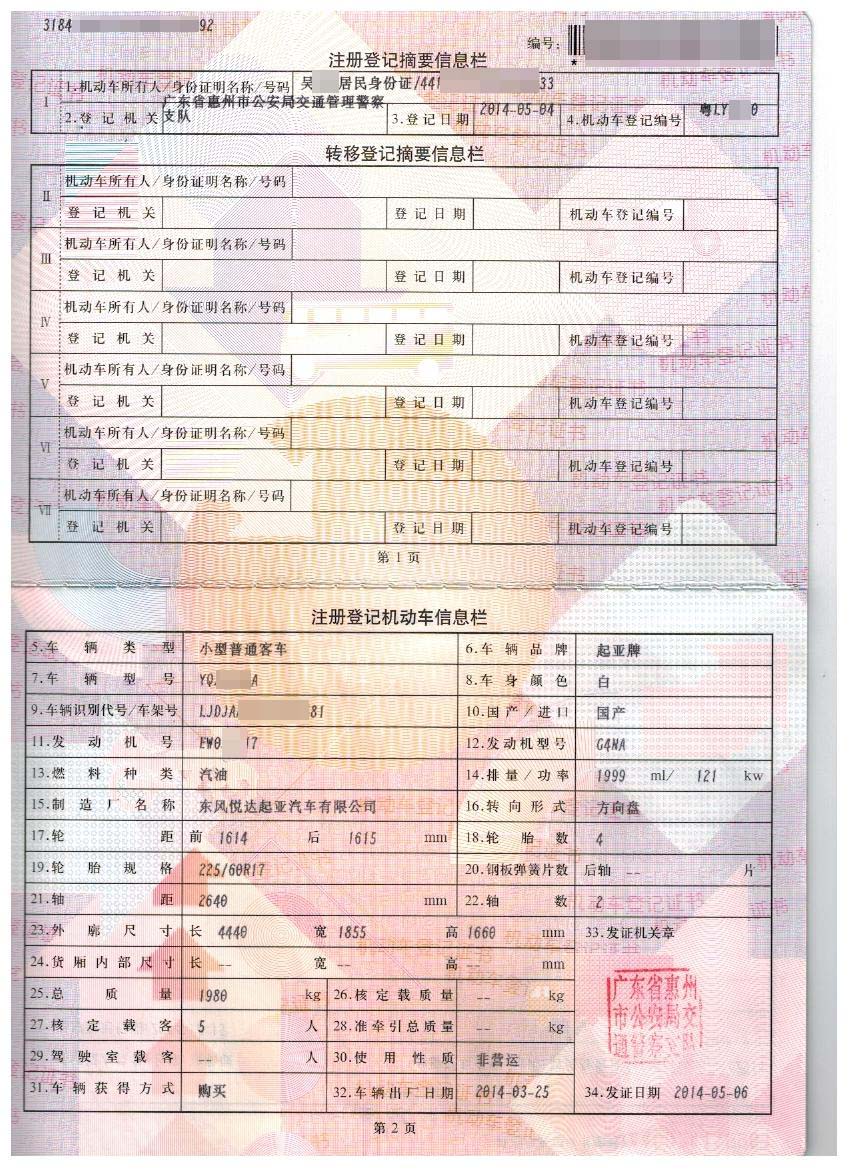 3184 92
编号:
*
注册登记摘要信息栏
I 1.机动车所有人/身份证明名称/号码 吴 居民身份证/441 33
2.登记机关 广东省惠州市公安局交通管理警察支队 3.登记日期 2014-05-04 4.机动车登记编号 粤LY 0
转移登记摘要信息栏
II 机动车所有人/身份证明名称/号码
登记机关 登记日期 机动车登记编号
III 机动车所有人/身份证明名称/号码
登记机关 登记日期 机动车登记编号
IV 机动车所有人/身份证明名称/号码
登记机关 登记日期 机动车登记编号
V 机动车所有人/身份证明名称/号码
登记机关 登记日期 机动车登记编号
VI 机动车所有人/身份证明名称/号码
登记机关 登记日期 机动车登记编号
VII 机动车所有人/身份证明名称/号码
登记机关 登记日期 机动车登记编号
第1页
注册登记机动车信息栏
5.车辆类型 小型普通客车 6.车辆品牌 起亚牌
7.车辆型号 YQ A 8.车身颜色 白
9.车辆识别代号/车架号 LJDJA 81 10.国产/进口 国产
11.发动机号 EW0 17 12.发动机型号 G4NA
13.燃料种类 汽油 14.排量/功率 1999 ml/ 121 kw
15.制造厂名称 东风悦达起亚汽车有限公司 16.转向形式 方向盘
17.轮距 前 1614 后 1615 mm 18.轮胎数 4
19.轮胎规格 225/60R17 20.钢板弹簧片数 后轴 -- 片
21.轴距 2640 mm 22.轴数 2
23.外廓尺寸 长 4440 宽 1855 高 1660 mm 33.发证机关章
24.货厢内部尺寸 长 -- 宽 -- 高 -- mm
25.总质量 1980 kg 26.核定载质量 -- kg
广东省惠州
市公安局交
通警察支队
27.核定载客 5 人 28.准牵引总质量 -- kg
29.驾驶室载客 -- 人 30.使用性质 非营运
31.车辆获得方式 购买 32.车辆出厂日期 2014-03-25 34.发证日期 2014-05-06
第2页